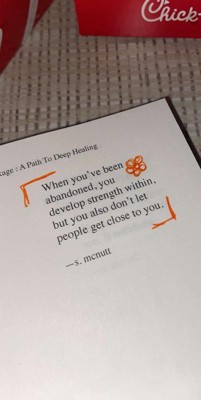 Chick-
age : A Path To Deep Healing
When you've been
abandoned, you
develop strength within,
but you also don't let
people get close to you.
—s. mcnutt